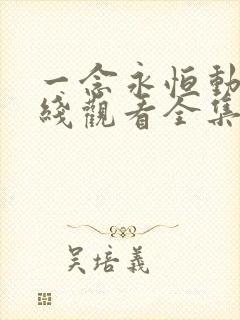 一念永恒動
綫觀看全集
吴培義